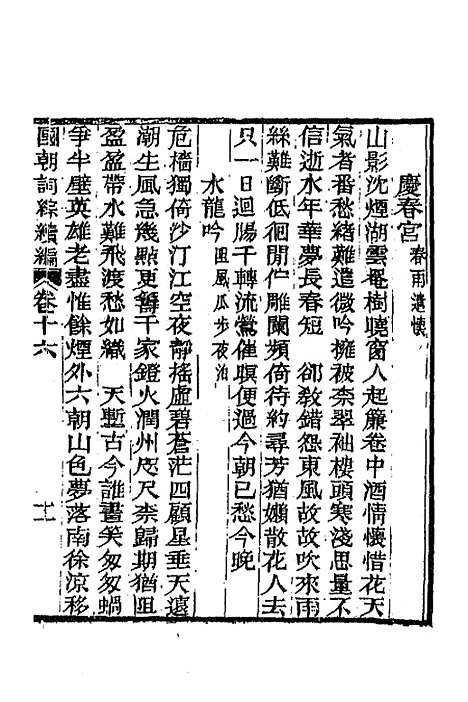 慶春宮 春雨遣懷
山影沈煙湖雲罨樹曉窗人起簾卷中酒情懷惜花天
氣者番愁緒難遣微吟擁被柰翠袖樓頭寒淺思量不
信逝水年華夢長春短 卻教錯怨東風故故吹來雨
絲難斷低徊閒佇雕闌頻倚待約尋芳猶嬾散花人去
只一日迴腸千轉流鶯催暝便過今朝已愁今晚
水龍吟 阻風瓜步夜泊
危檣獨倚沙汀江空夜靜搖虛碧蒼茫四顧星垂天遠
潮生風急幾點更籌千家鐙火潤州咫尺柰歸期猶阻
盈盈帶水難飛渡愁如織 天塹古今誰畫笑匆匆蝸
爭半壁英雄老盡惟餘煙外六朝山色夢落南徐涼移
國朝詞綜續編 卷十六 十一